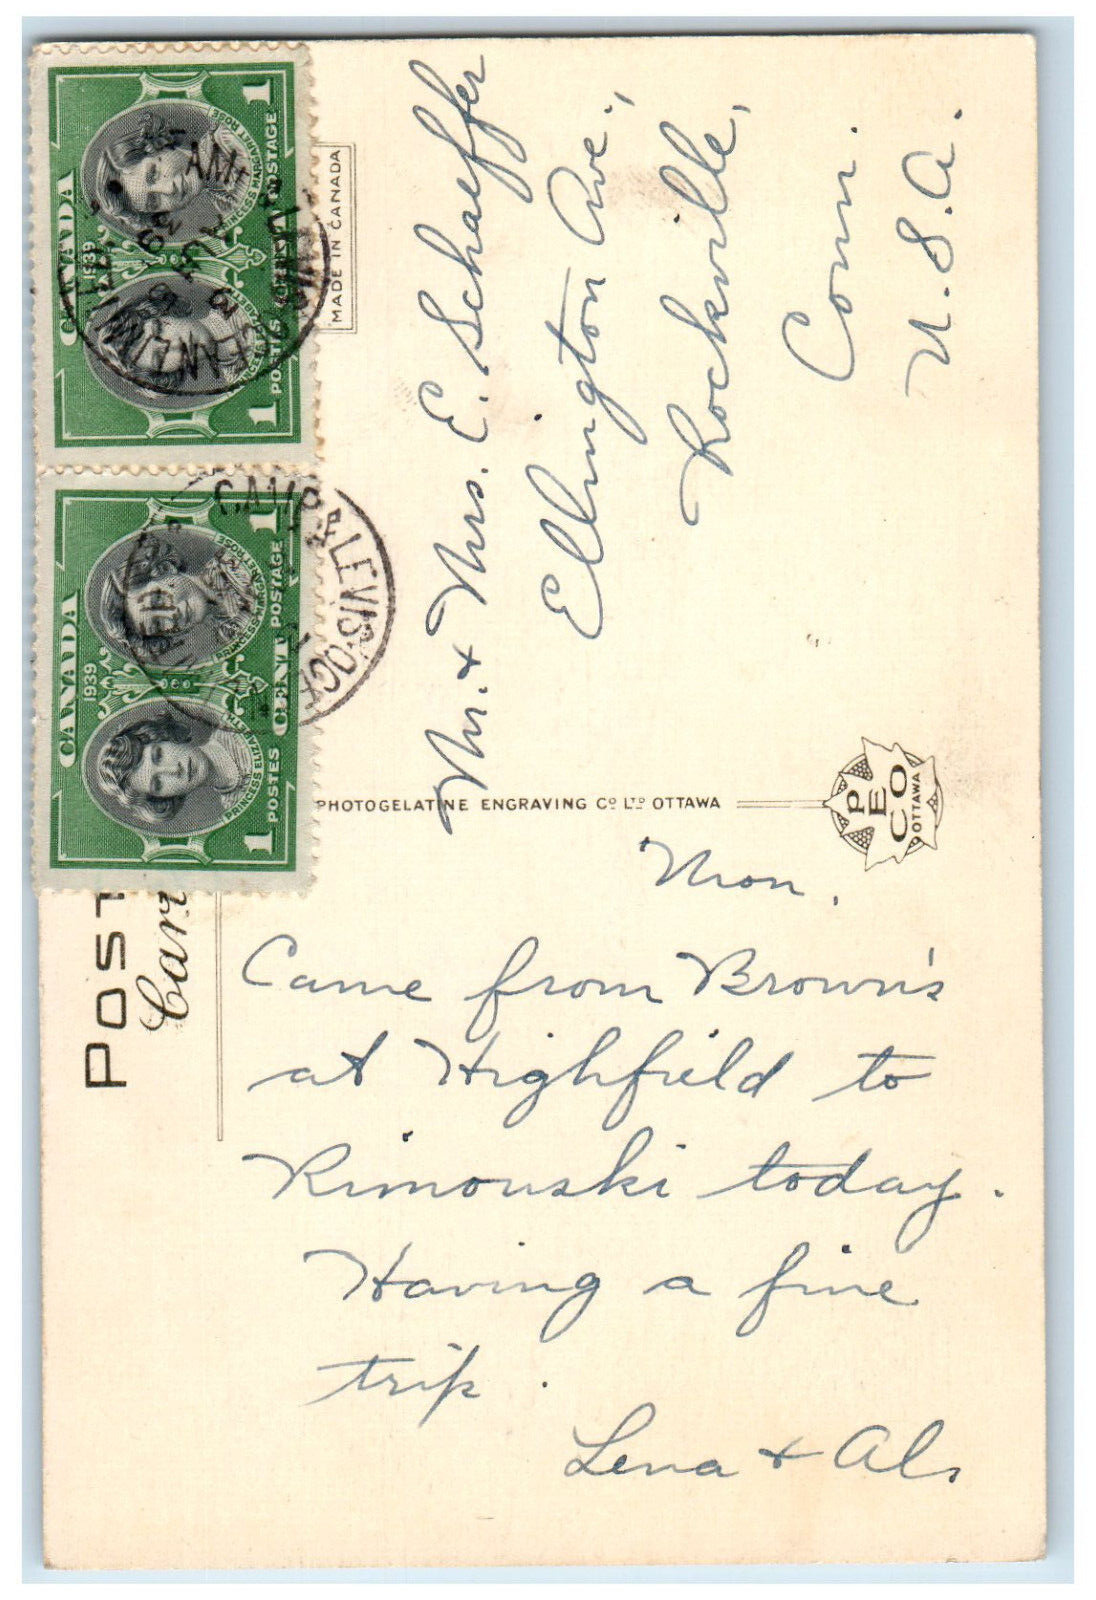 POST
Car
MADE IN CANADA
CANADA
1939
PRINCESS ELIZABETH
PRINCESS MARGARET ROSE
1 POSTES CENT POSTAGE 1
CANADA
1939
PRINCESS ELIZABETH
PRINCESS MARGARET ROSE
1 POSTES CENT POSTAGE 1
CAMP.
LEVIS
PHOTOGELATINE ENGRAVING CO LTD OTTAWA
PECO
OTTAWA
Mr. + Mrs. E. Schaeffer
Ellington Ave.,
Rockville,
Conn.
U.S.A.
Mon.
Came from Brown's
at Highfield to
Rimouski today.
Having a fine
trip.
Lena + Al.